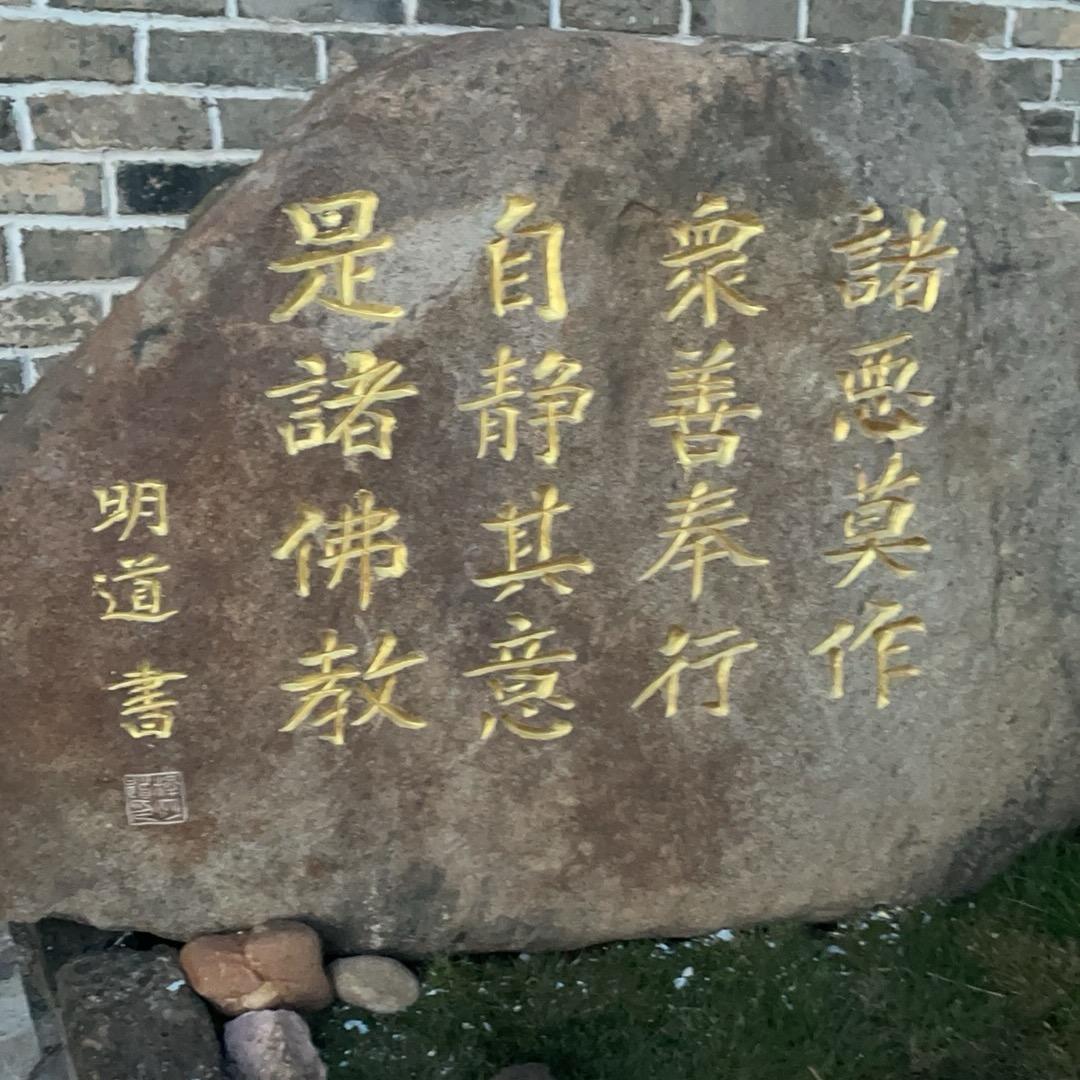 諸惡莫作
衆善奉行
自静其意
是諸佛教
明道書